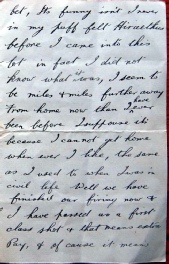 lot, Its funny isn't I never
in my puff felt Hiraethus
before I came into this
lot in fact I did not
know what it was, I seem to
be miles & miles further away
from home now than I have ever
been before I suppose its
because I cannot get home
when ever I like, the same
as I used to when I was in
civil life Well we have
finished our firing now &
I have passed as a first
class shot & that means extra
Pay, & of cause it means